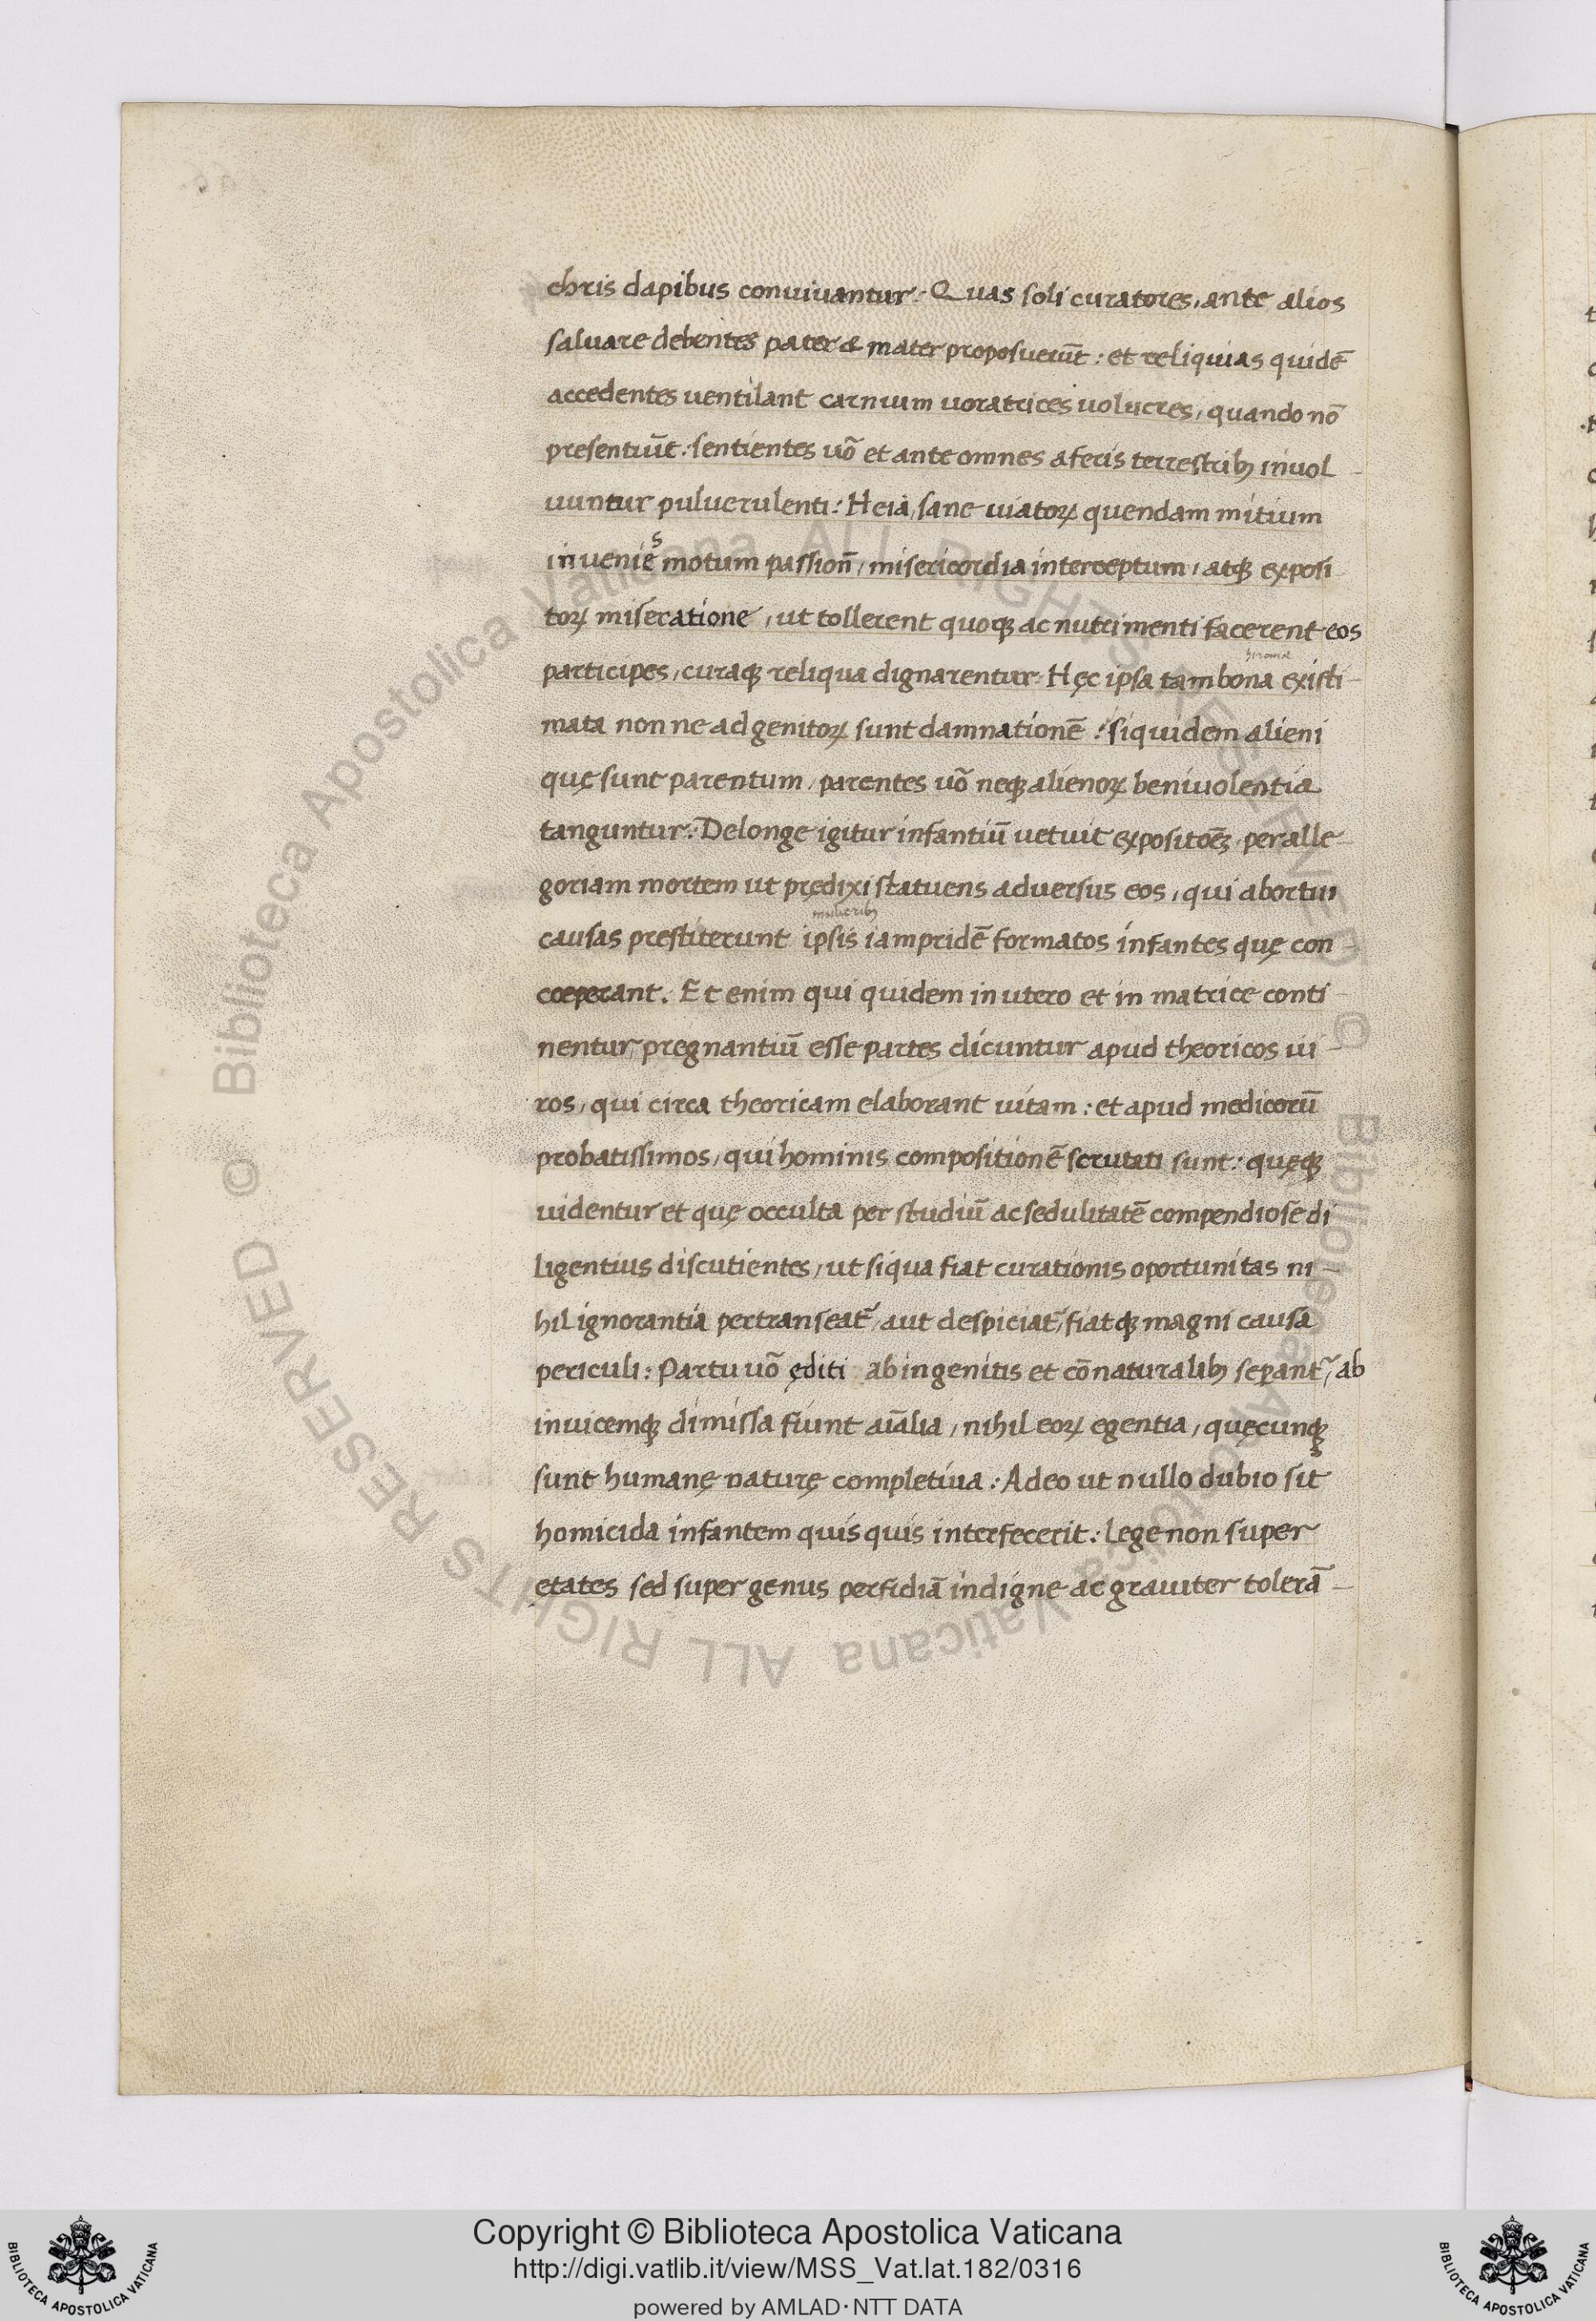 chris dapibus conuiuantur. Quas soli curatores, ante alios
saluare debentes pater & mater proposuerūt: et reliquias quidē
accedentes uentilant carnium uoratrices uolucres, quando nō
presentiūt: sentientes uō et ante omnes a feris terrestribꝫ inuol-
uuntur puluerulenti: Heia, sane uiatoꝝ quendam mitium
inueniēs motum passioñ, misericordia interceptum, atqꝫ exposi
toꝝ miseratione, ut tollerent quoqꝫ ac nutrimenti facerent eos
participes, curaqꝫ reliqua dignarentur. Hęc ipsa tam bona existi-
mata non ne ad genitoꝝ sunt damnationē: siquidem alieni
quę sunt parentum, parentes uō neqꝫ alienoꝝ beniuolentia
tanguntur: De longe igitur infantiū uetuit expositōēꝫ, per alle-
goriam mortem ut prędixi statuens aduersus eos, qui abortui
mulieribꝫ
causas prestiterunt ipsis iampridē formatos infantes quę con-
coeperant. Et enim qui quidem in utero et in matrice conti-
nentur, pregnantiū esse partes dicuntur apud theoricos ui-
ros, qui circa theoricam elaborant uitam: et apud medicorū
probatissimos, qui hominis compositionē scrutati sunt: quęqꝫ
uidentur et quę occulta per studiū ac sedulitatē compendiosē di
ligentius discutientes, ut siqua fiat curationis oportunitas ni-
hil ignorantia pertranseat᷑, aut despiciat᷑, fiatqꝫ magni causa
periculi: Partu uō ęditi ab ingenitis et cōnaturalibꝫ sepant᷑, ab
inuicemqꝫ dimissa fiunt aīalia, nihil eoꝝ egentia, quęcunqꝫ
sunt humanę naturę completiua: Adeo ut nullo dubio sit
homicida infantem quisquis interfecerit: Lege non super
etates sed super genus perfidiā indigne ac grauiter tolerā-
© Biblioteca Apostolica Vaticana ALL RIGHTS RESERVED © Biblioteca Apostolica Vaticana ALL RIGHTS RESERVED
Copyright © Biblioteca Apostolica Vaticana
http://digi.vatlib.it/view/MSS_Vat.lat.182/0316
powered by AMLAD·NTT DATA
BIBLIOTECA APOSTOLICA VATICANA
BIBLIOTECA APOSTOLICA VATICANA